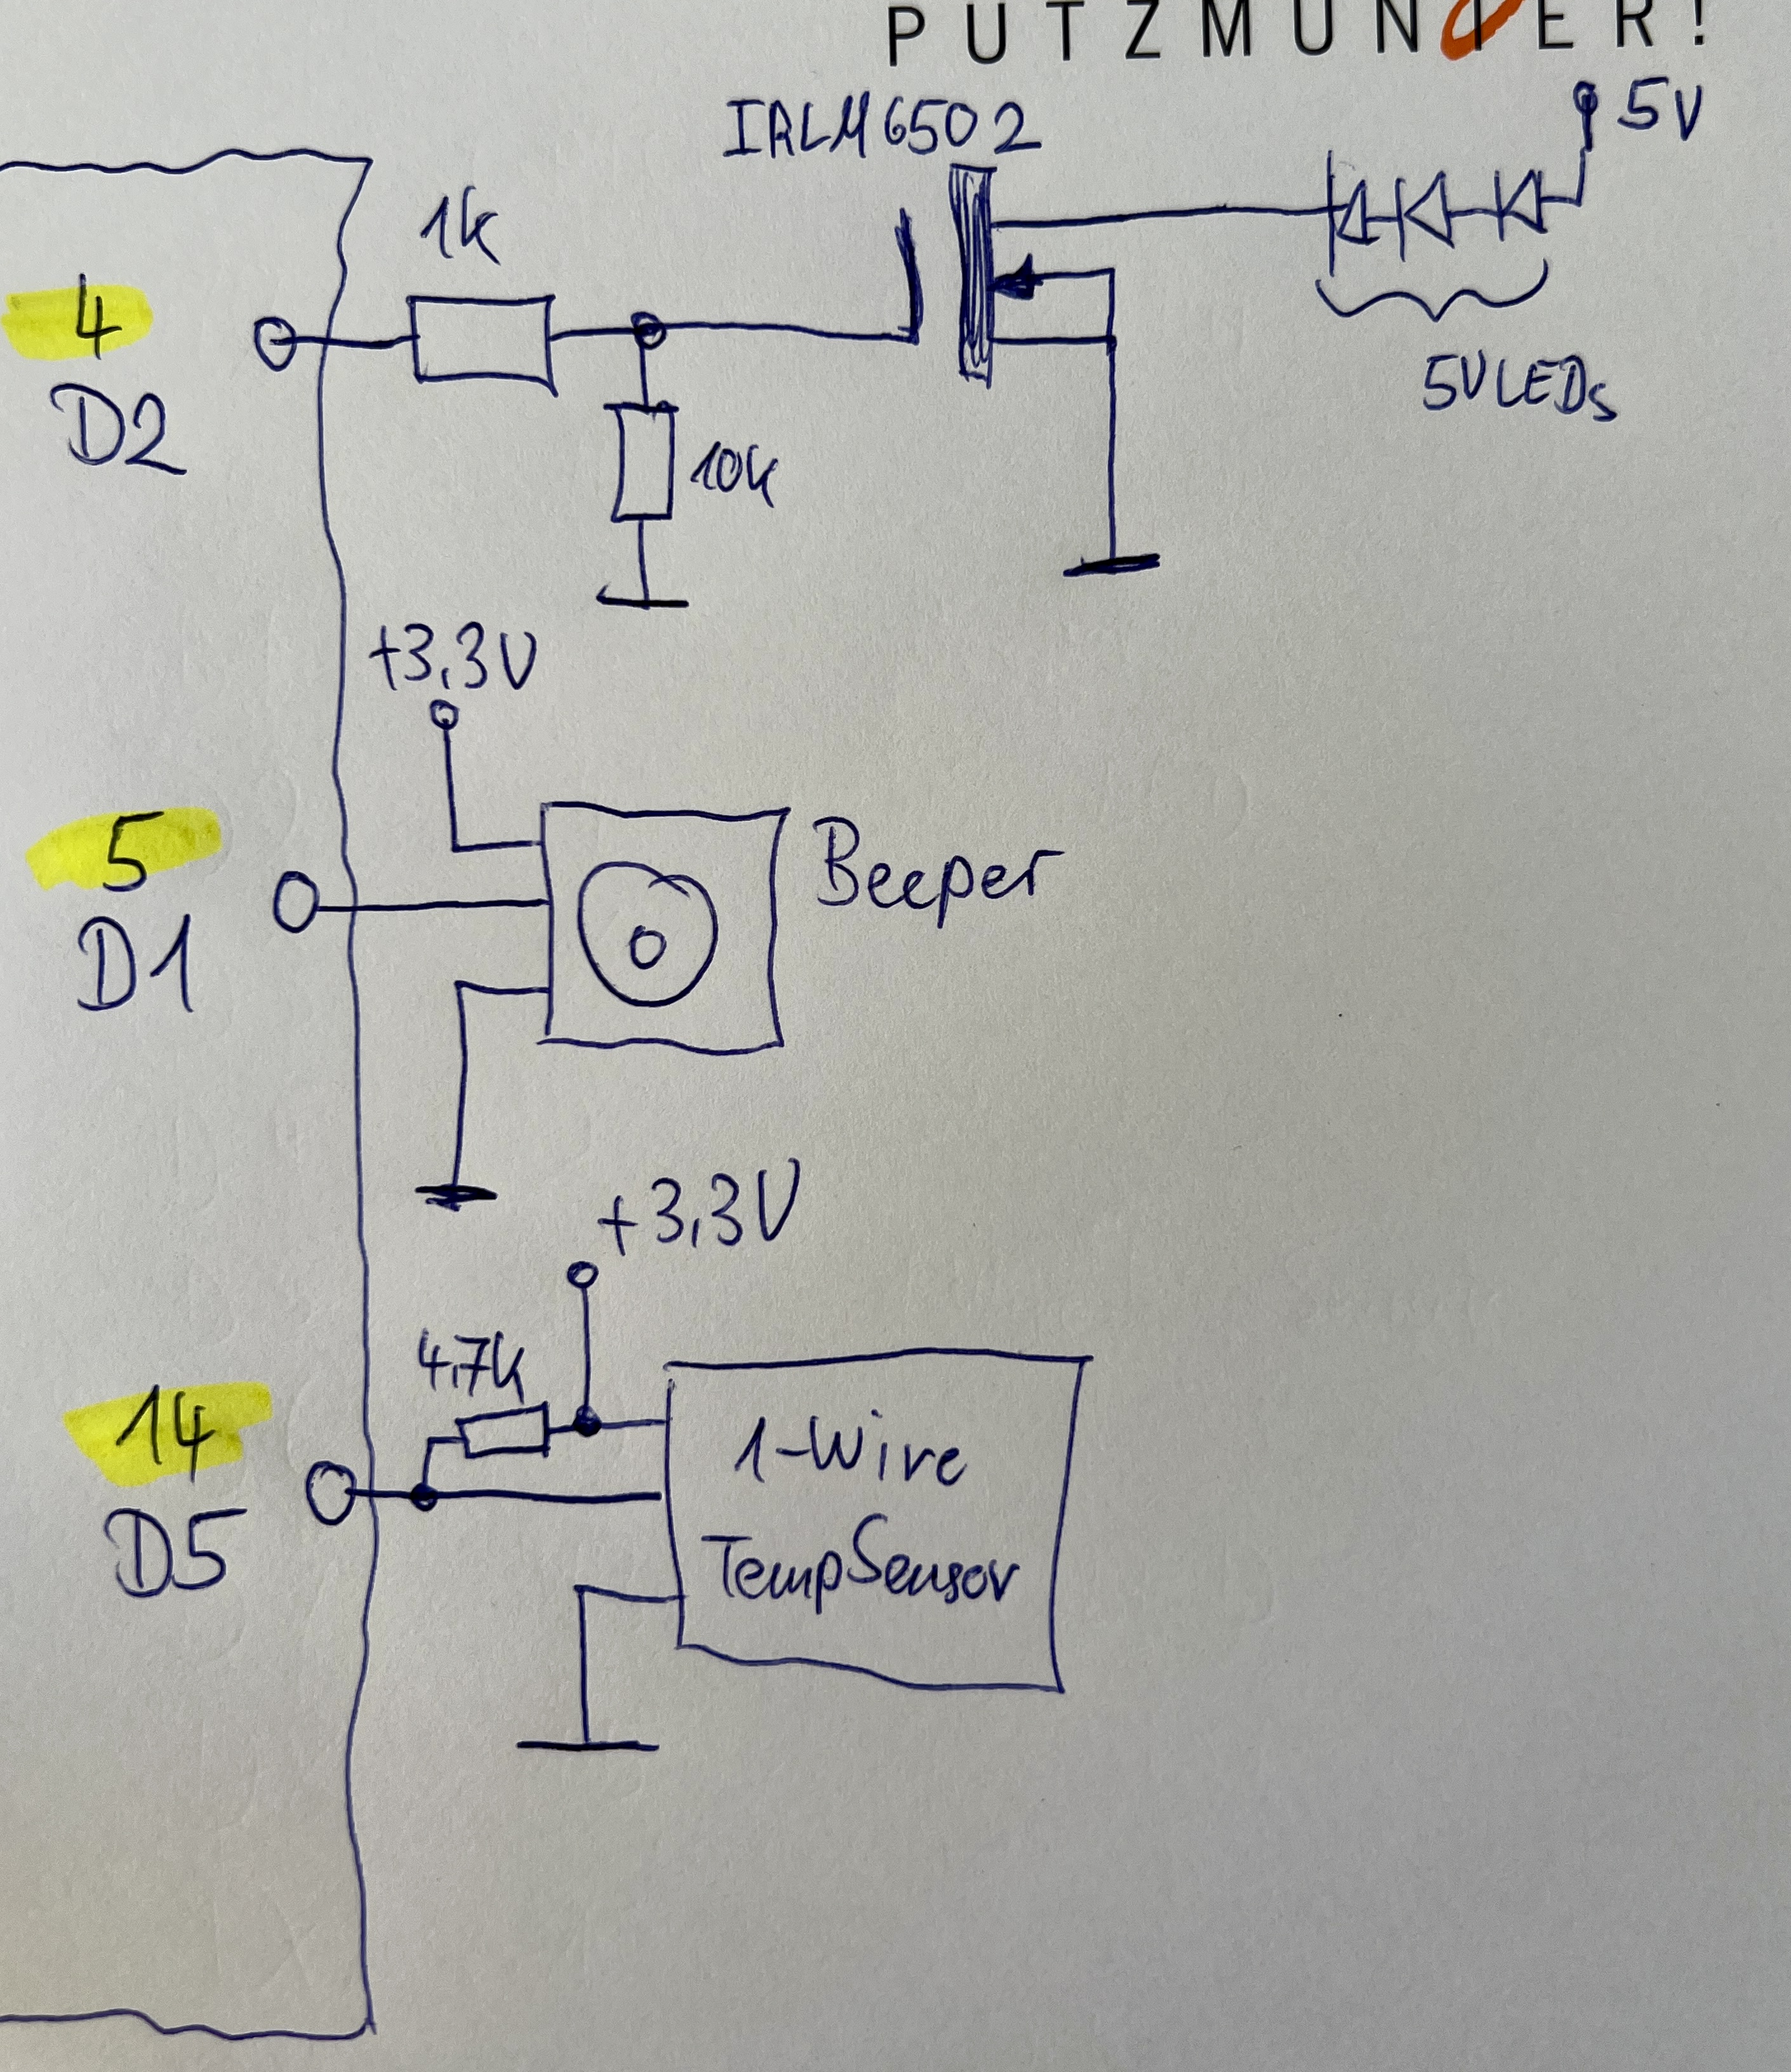 PUTZMUNTER!
IRLM6502
5V
1k
4
D2
10k
5V LEDs
+3.3V
5
D1
Beeper
+3.3V
4.7k
14
D5
1-Wire
TempSensor